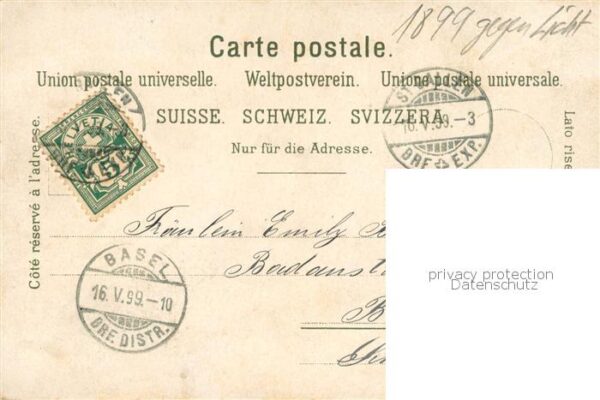 1899 gegen Licht
Carte postale.
Union postale universelle. Weltpostverein. Unione postale universale.
SUISSE. SCHWEIZ. SVIZZERA.
Nur für die Adresse.
Côté réservé à l'adresse.
Lato rise
HELVETIA
5
ST. GALLEN
16. V. 99. - 3
BRF. EXP.
BASEL
16. V. 99. - 10
BRF. DISTR.
Fräulein Emily
Badanst
B
privacy protection
Datenschutz